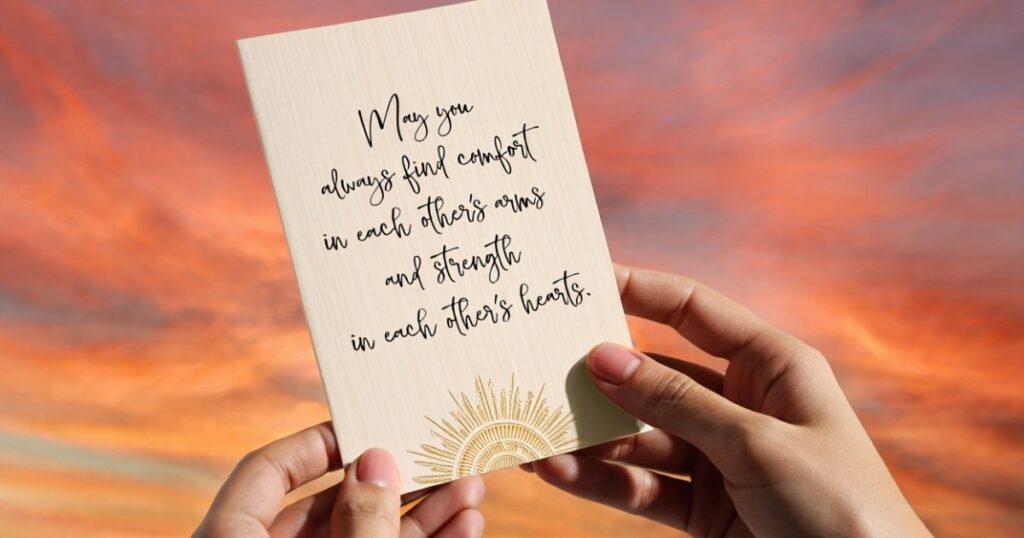 May you
always find comfort
in each other's arms
and strength
in each other's hearts.